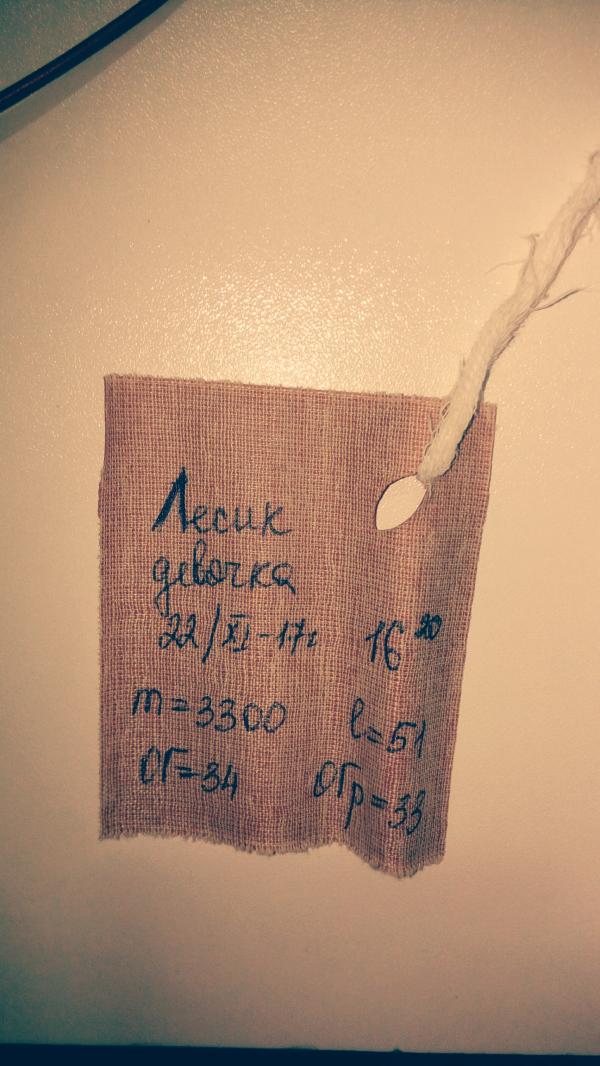 Лесик
девочка
22/XI-17г 16²⁰
m=3300 l=51
ОГ=34 ОГр=33